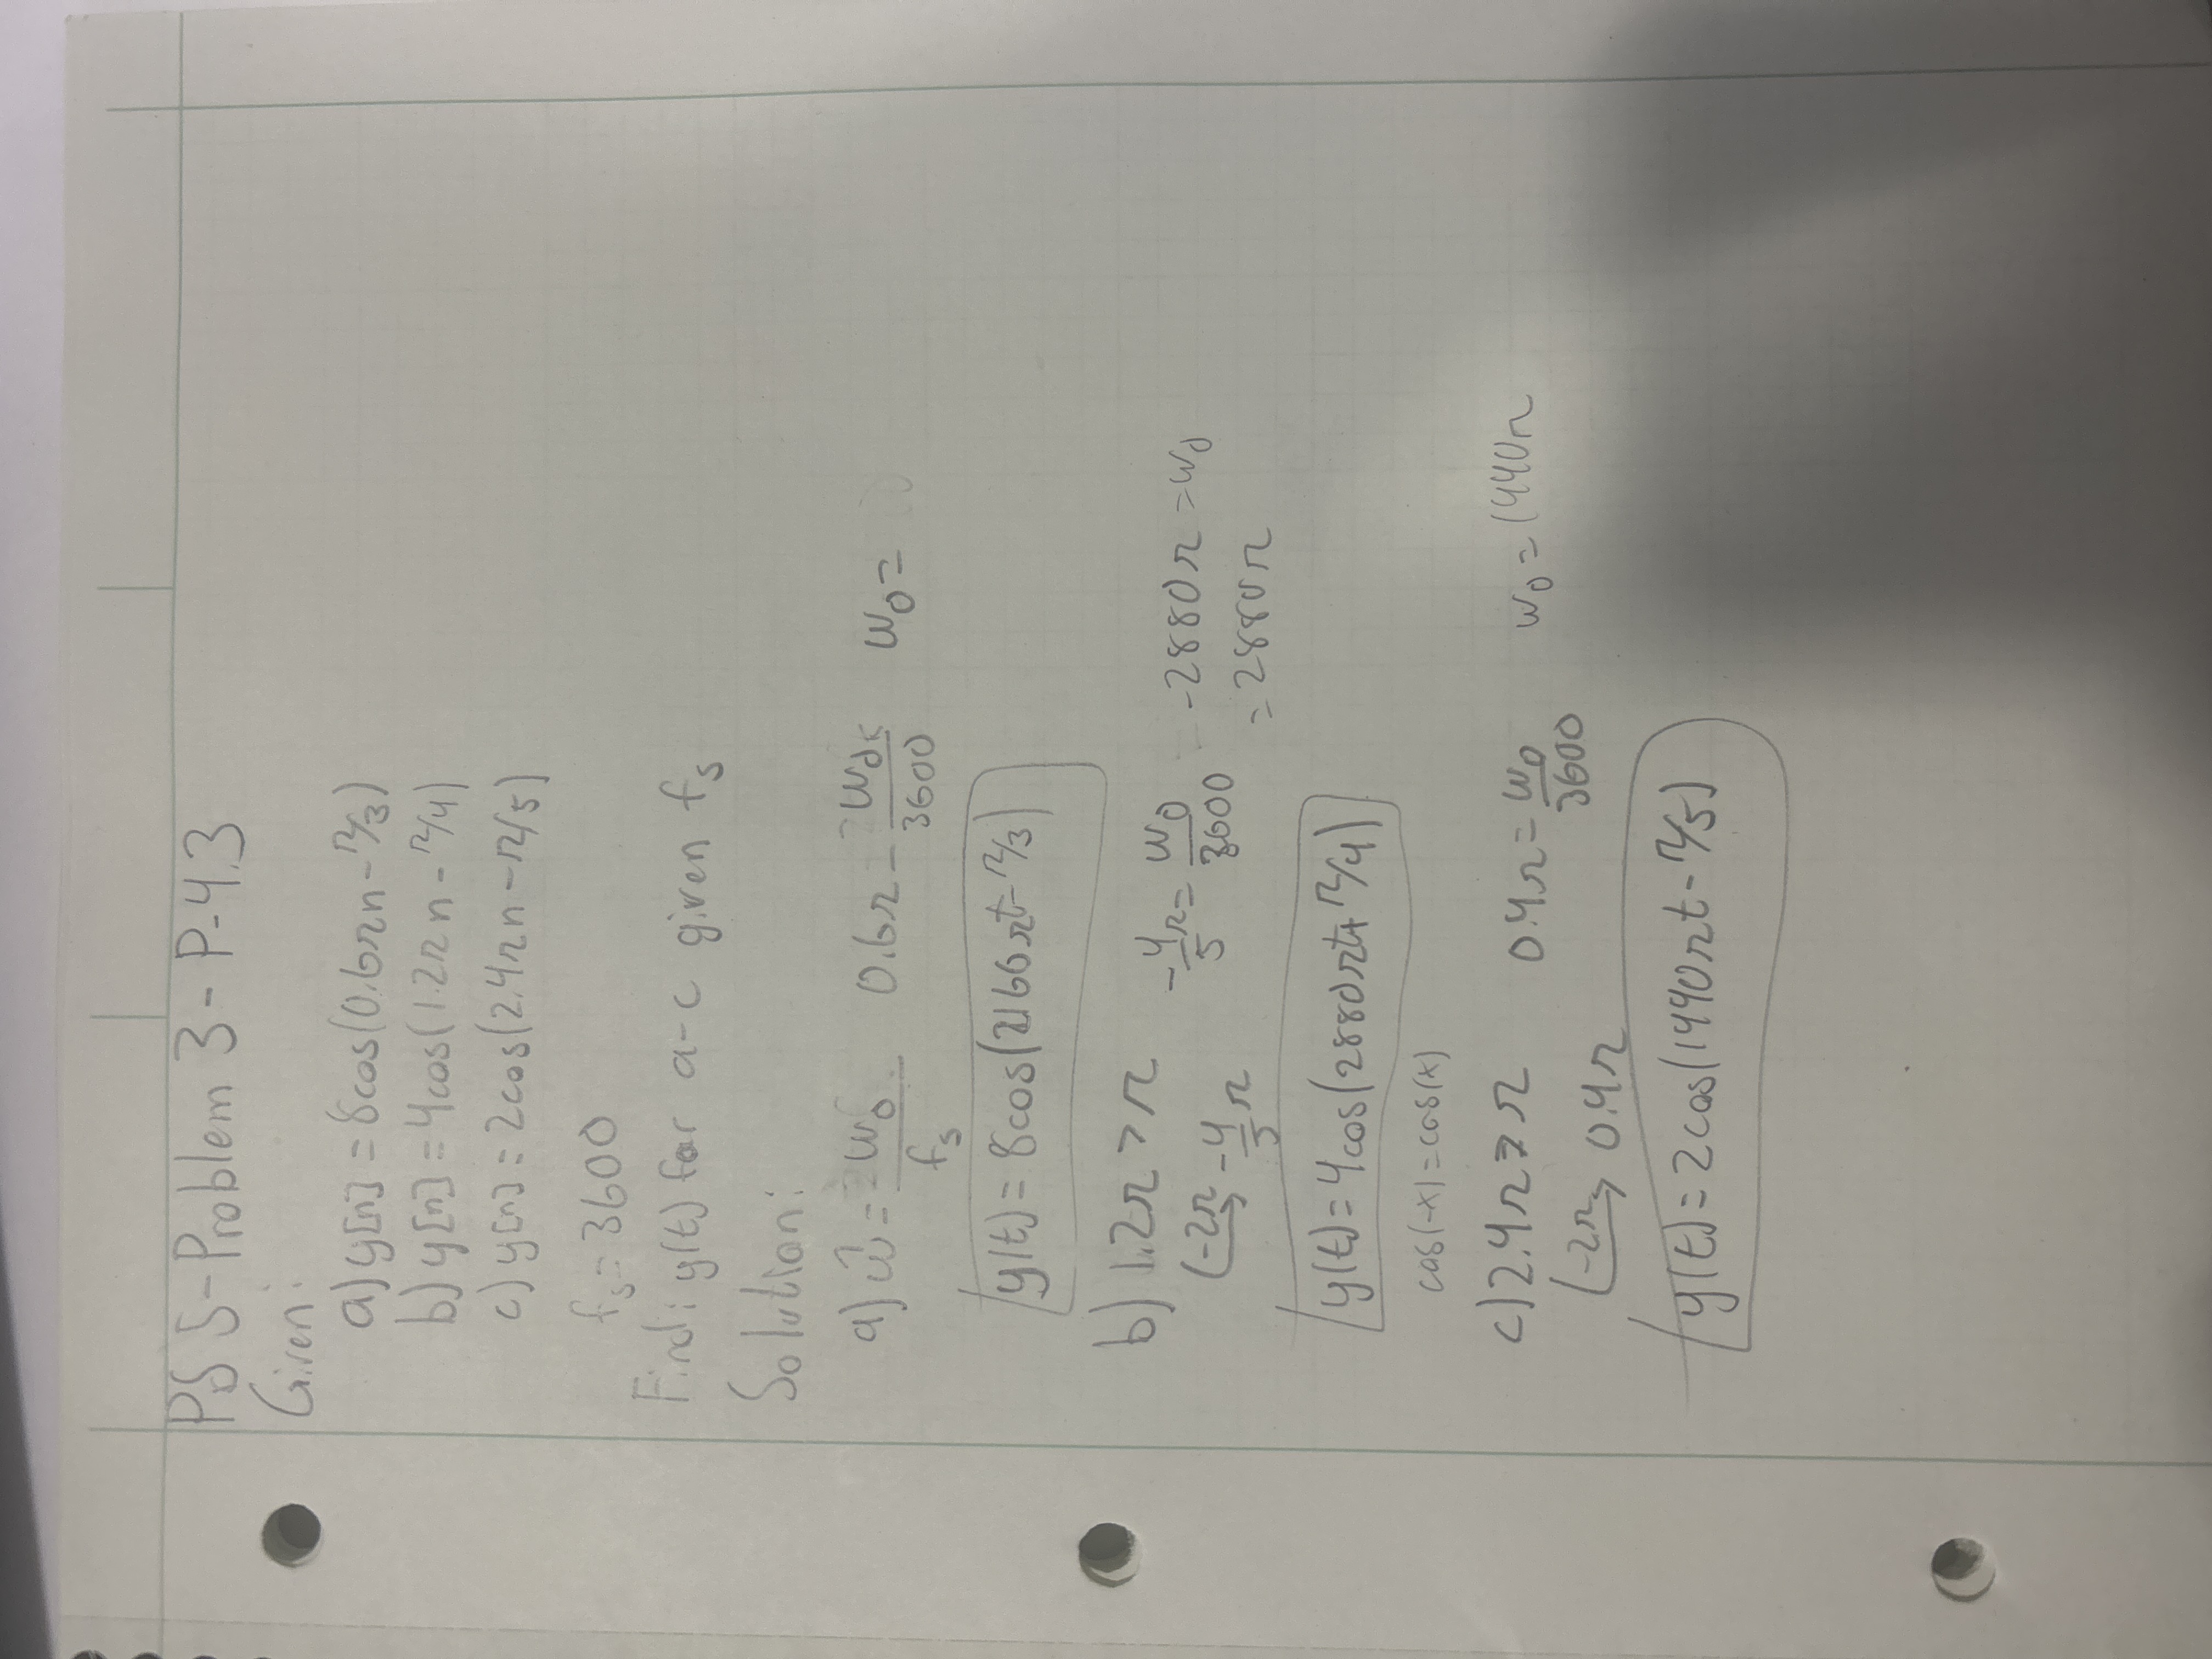 PS 5-Problem 3 - P-4.3
Given:
a) y[n] = 8cos(0.6πn - π/3)
b) y[n] = 4cos(1.2πn - π/4)
c) y[n] = 2cos(2.4πn - π/5)
fs = 3600
Find: y(t) for a-c given fs
Solution:
a) ŵ = w0/fs 0.6π = w0/3600 w0 =
y(t) = 8cos(2160πt - π/3)
b) 1.2π > π -4/5π = w0/3600 -2880π = w0
(-2π → -4/5π = 2880π
y(t) = 4cos(2880πt + π/4)
cos(-x) = cos(x)
c) 2.4π > π 0.4π = w0/3600 w0 = 1440π
(-2π → 0.4π
y(t) = 2cos(1440πt - π/5)